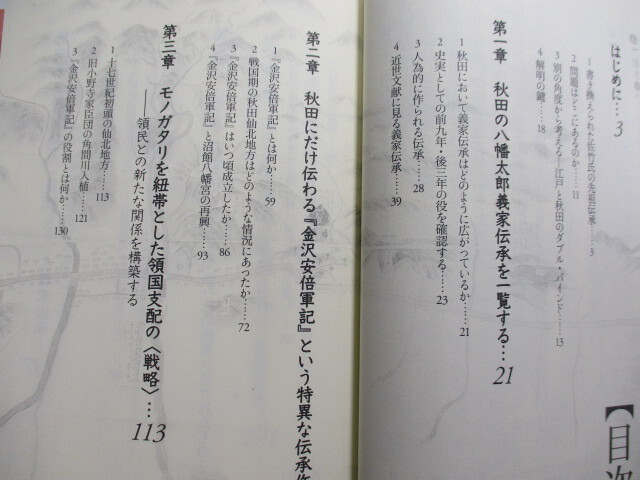 【目次
はじめに…3
1 書き換えられた佐竹氏の先祖伝承……3
2 問題はどこにあるのか……11
3 別の角度から考える―江戸と秋田のダブル・バインド……13
4 解明の鍵……18
第一章 秋田の八幡太郎義家伝承を一覧する…21
1 秋田において義家伝承はどのように広がっているか……21
2 史実としての前九年・後三年の役を確認する……23
3 人為的に作られる伝承……28
4 近世文献に見る義家伝承……39
第二章 秋田にだけ伝わる『金沢安倍軍記』という特異な伝承作
1 『金沢安倍軍記』とは何か……59
2 戦国期の秋田仙北地方はどのような情況にあったか……72
3 『金沢安倍軍記』はいつ頃成立したか……86
4 『金沢安倍軍記』と沼館八幡宮の再興……93
第三章 モノガタリを紐帯とした領国支配の〈戦略〉…113
――領民との新たな関係を構築する
1 十七世紀初頭の仙北地方……113
2 旧小野寺家臣団の角間川入植……121
3 『金沢安倍軍記』の役割とは何か……130